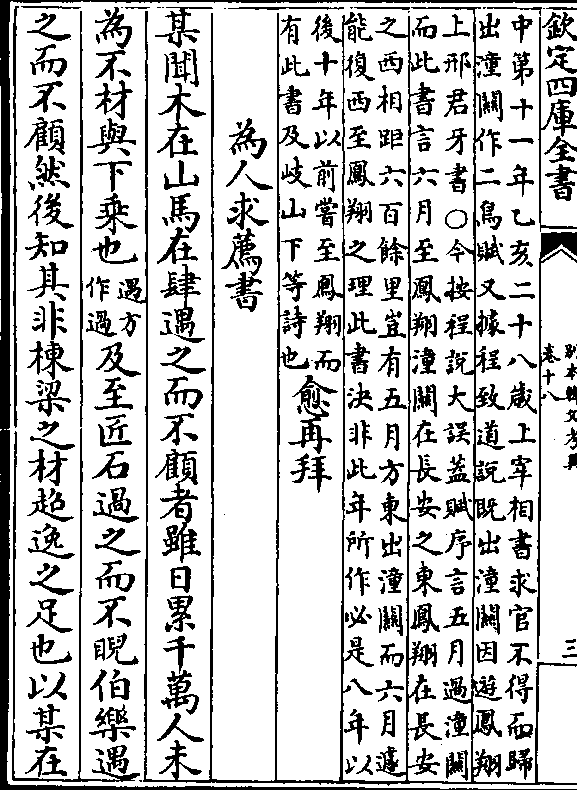 欽定四庫全書
別本韓文考異
卷十八
三
中第十一年乙亥二十八歲上宰相書求官不得而歸
出潼關作二鳥賦又據程致道說既出潼關因遊鳳翔
上邢君牙書○今按程說大誤蓋賦序言五月過潼關
而此書言六月至鳳翔潼關在長安之東鳳翔在長安
之西相距六百餘里豈有五月方東出潼關而六月遽
能復西至鳳翔之理此書決非此年所作必是八年以
後十年以前嘗至鳳翔而
有此書及岐山下等詩也
愈再拜
為人求薦書
某聞木在山馬在肆遇之而不顧者雖日累千萬人未
為不材與下乘也遇方作過及至匠石過之而不睨伯樂遇
之而不顧然後知其非棟梁之材超逸之足也以某在